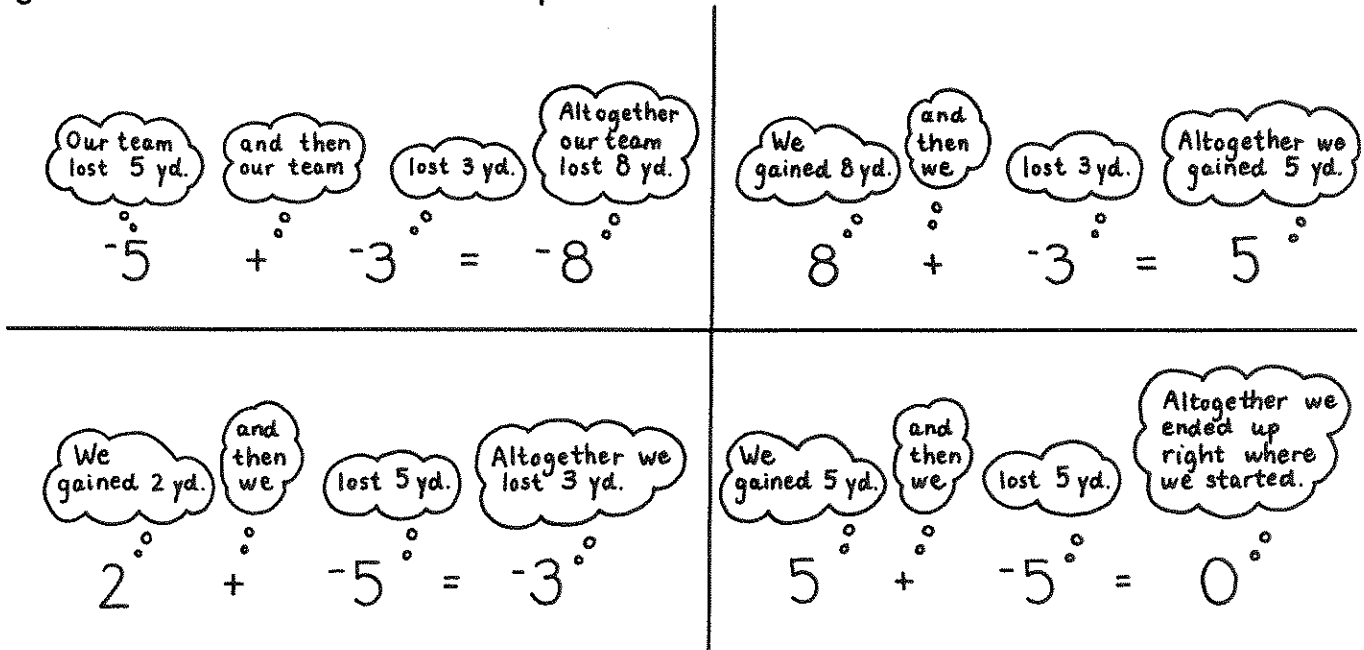 Our team
lost 5 yd.
and then
our team
lost 3 yd.
Altogether
our team
lost 8 yd.
⁻5 + ⁻3 = ⁻8
We
gained 8 yd.
and
then
we
lost 3 yd.
Altogether we
gained 5 yd.
8 + ⁻3 = 5
We
gained 2 yd.
and
then
we
lost 5 yd.
Altogether we
lost 3 yd.
2 + ⁻5 = ⁻3
We
gained 5 yd.
and
then
we
lost 5 yd.
Altogether we
ended up
right where
we started.
5 + ⁻5 = 0